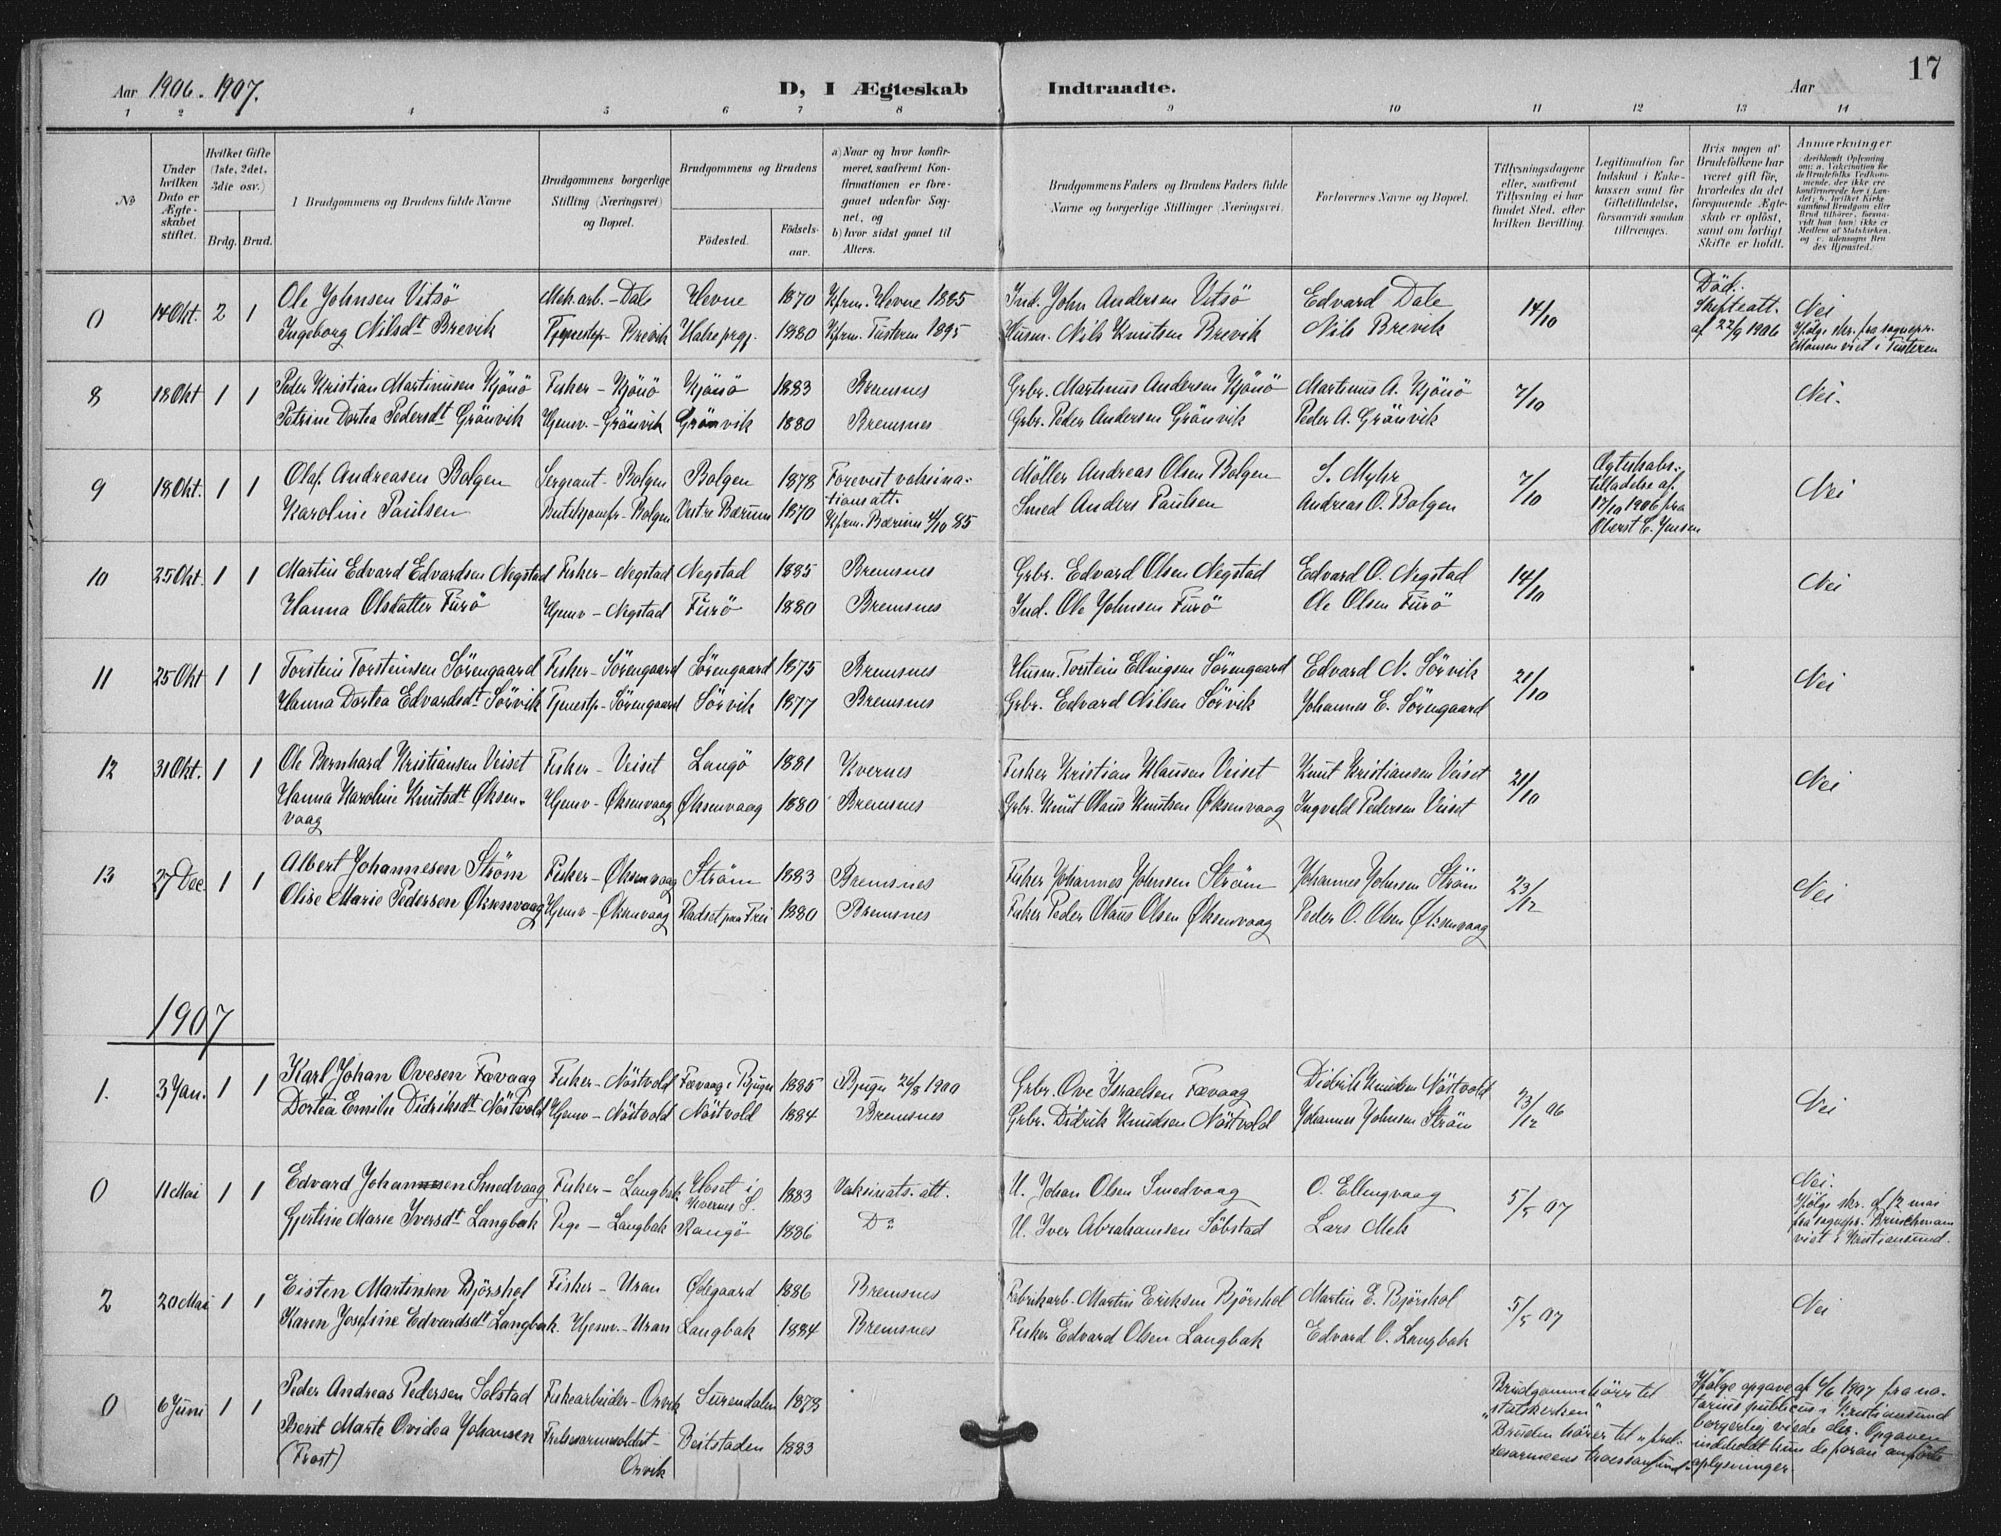 Aar 1906-1907. D, I Ægteskab Indtraadte. Aar 17
1 2 4 5 6 7 8 9 10 11 12 13 14
No
Under hvilken Dato er Ægteskabet stiftet.
Hvilket Gifte (1ste, 2det, 3die osv.)
Brdg. Brud.
1 Brudgommens og Brudens fulde Navne
Brudgommens borgerlige Stilling (Næringsvei) og Bopæl.
Brudgommens og Brudens
Fødested. Fødselsaar.
a) Naar og hvor konfirmeret, saafremt Konfirmationen er foregaaet udenfor Sognet, og
b) hvor sidst gaaet til Alters.
Brudgommens Faders og Brudens Faders fulde Navne og borgerlige Stillinger (Næringsvei).
Forlovernes Navne og Bopæl.
Tillysningsdagene eller, saafremt Tillysning ei har fundet Sted, efter hvilken Bevilling.
Legitimation for Indskud i Enkekassen samt for Giftetilladelse, forsaavidt saadan tiltrænges.
Hvis nogen af Brudefolkene har været gift før, hvorledes da det foregaaende Ægteskab er opløst, samt om lovligt Skifte er holdt.
Anmærkninger
0 14 Okt. 2 1 Ole Johnsen Vitsö Mek.arb. - Dale Hevne 1870 Kfrm. Hevne 1885 Ind. John Andersen Vitsö Edvard Dale 14/10 Död. Skifteatt. af 22/9 1906 Nei
Ingeborg Nilsdt Brevik Tjenestp. - Brevik Halse prgj. 1880 Kfrm. Tusteren 1895 Husm. Nils Knutsen Brevik Nils Brevik Ifölge skr. fra sognepr. Hansen viet i Tusteren
8 18 Okt 1 1 Peder Kristian Martinusen Kjönö Fisker - Kjönö Kjönö 1883 Bremsnes Grbr. Martinus Andersen Kjönö Martinus A. Kjönö 7/10 Nei.
Petrine Dortea Pedersdt Grönvik Hjemv - Grönvik Grönvik 1880 Bremsnes Grbr. Peder Andersen Grönvik Peder A. Grönvik
9 18 Okt. 1 1 Olaf Andreasen Bolgen Sergeant - Bolgen Bolgen 1878 Forevist vaksinationsatt. Möller Andreas Olsen Bolgen S. Myhr 7/10 Ægteskabstilladelse af 17/10 1906 fra Oberst C. Jensen Nei
Karoline Paulsen Butikjomfr - Bolgen Vestre Bærum 1870 Kfrm. Bærum 4/10 85 Smed Anders Paulsen Andreas O. Bolgen
10 25 Okt. 1 1 Martin Edvard Edvardsen Negstad Fisker - Negstad Negstad 1885 Bremsnes Grbr. Edvard Olsen Negstad Edvard O. Negstad 14/10 Nei
Hanna Olsdatter Furö Hjemv - Negstad Furö 1880 Bremsnes Ind. Ole Johnsen Furö Ole Olsen Furö
11 25 Okt 1 1 Torstein Torsteinsen Sörengaard Fisker - Sörengaard Sörengaard 1875 Bremsnes Husm. Torstein Ellingsen Sörengaard Edvard N. Sörvik 21/10 Nei
Hanna Dortea Edvardsdt Sörvik Tjenestp - Sörengaard Sörvik 1877 Bremsnes Grbr. Edvard Nilsen Sörvik Johannes E. Sörengaard
12 31 Okt. 1 1 Ole Bernhard Kristiansen Veiset Fisker - Veiset Langö 1881 Kvernes Fisker Kristian Klausen Veiset Knut Kristiansen Veiset 21/10 Nei
Hanna Karoline Knutsdt Øksenvaag Hjemv - Øksenvaag Øksenvaag 1880 Bremsnes Grbr. Knut Olaus Knutsen Øksenvaag Ingvald Pedersen Veiset
13 27 Dec. 1 1 Albert Johannesen Ström Fisker - Øksenvaag Ström 1883 Bremsnes Fisker Johannes Johnsen Ström Johannes Johnsen Ström 23/12 Nei
Olise Marie Pedersen Øksenvaag Hjemv - Øksenvaag Fladset paa Frei 1880 Bremsnes Fisker Peder Olaus Olsen Øksenvaag Peder O. Olsen Øksenvaag
1907
1. 3 Jan. 1 1 Karl Johan Ovesen Fævaag Fisker - Nöstvold Fævaag i Bjugn 1885 Bjugn 26/8 1900 Grbr. Ove Israelsen Fævaag Didrik Knudsen Nöstvold 23/12 06 Nei
Dortea Emilie Didriksdt Nöstvold Hjemv - Nöstvold Nöstvold 1884 Bremsnes Grbr. Didrik Knudsen Nöstvold Johannes Johnsen Ström
0 11 Mai 1 1 Edvard Johannesen Smedvaag Fisker - Langbak Hoset i Kvernes S. 1883 Vaksinats. att. U. Johan Olsen Smedvaag O. Ellingvaag 5/5 07 Nei.
Gjertine Marie Iversdt Langbak Pige - Langbak Rangö 1886 Do U. Iver Abrahamsen Söbstad Lars Mek Ifölge skr. af 12 mai fra sognepr. Bruschmann viet i Kristiansund.
2 20 Mai 1 1 Eisten Martinsen Björshol Fisker - Uran Ødegaard 1886 Bremsnes Fabrikarb. Martin Eriksen Bjørshol Martin E. Bjørshol 5/5 07 Nei
Karen Josefine Edvardsdt Langbak Hjemv. - Uran Langbak 1884 Bremsnes Fisker Edvard Olsen Langbak Edvard O. Langbak
0 6 Juni 1 1 Peder Andreas Pedersen Solstad Fiskearbeider - Orvik Surendalen 1878 Brudgommen hörer til "statskirken" Ifölge opgave af 6/6 1907 fra notarius publicus i Kristiansund borgerlig viede der. Opgaven indeholdt kun de foran anförte oplysninger.
Berit Marte Ovidea Johansen (Frost) Frelsesarmesoldat - Orvik Beitstaden 1883 Bruden hörer til "frelsesarmeens trossamfund"